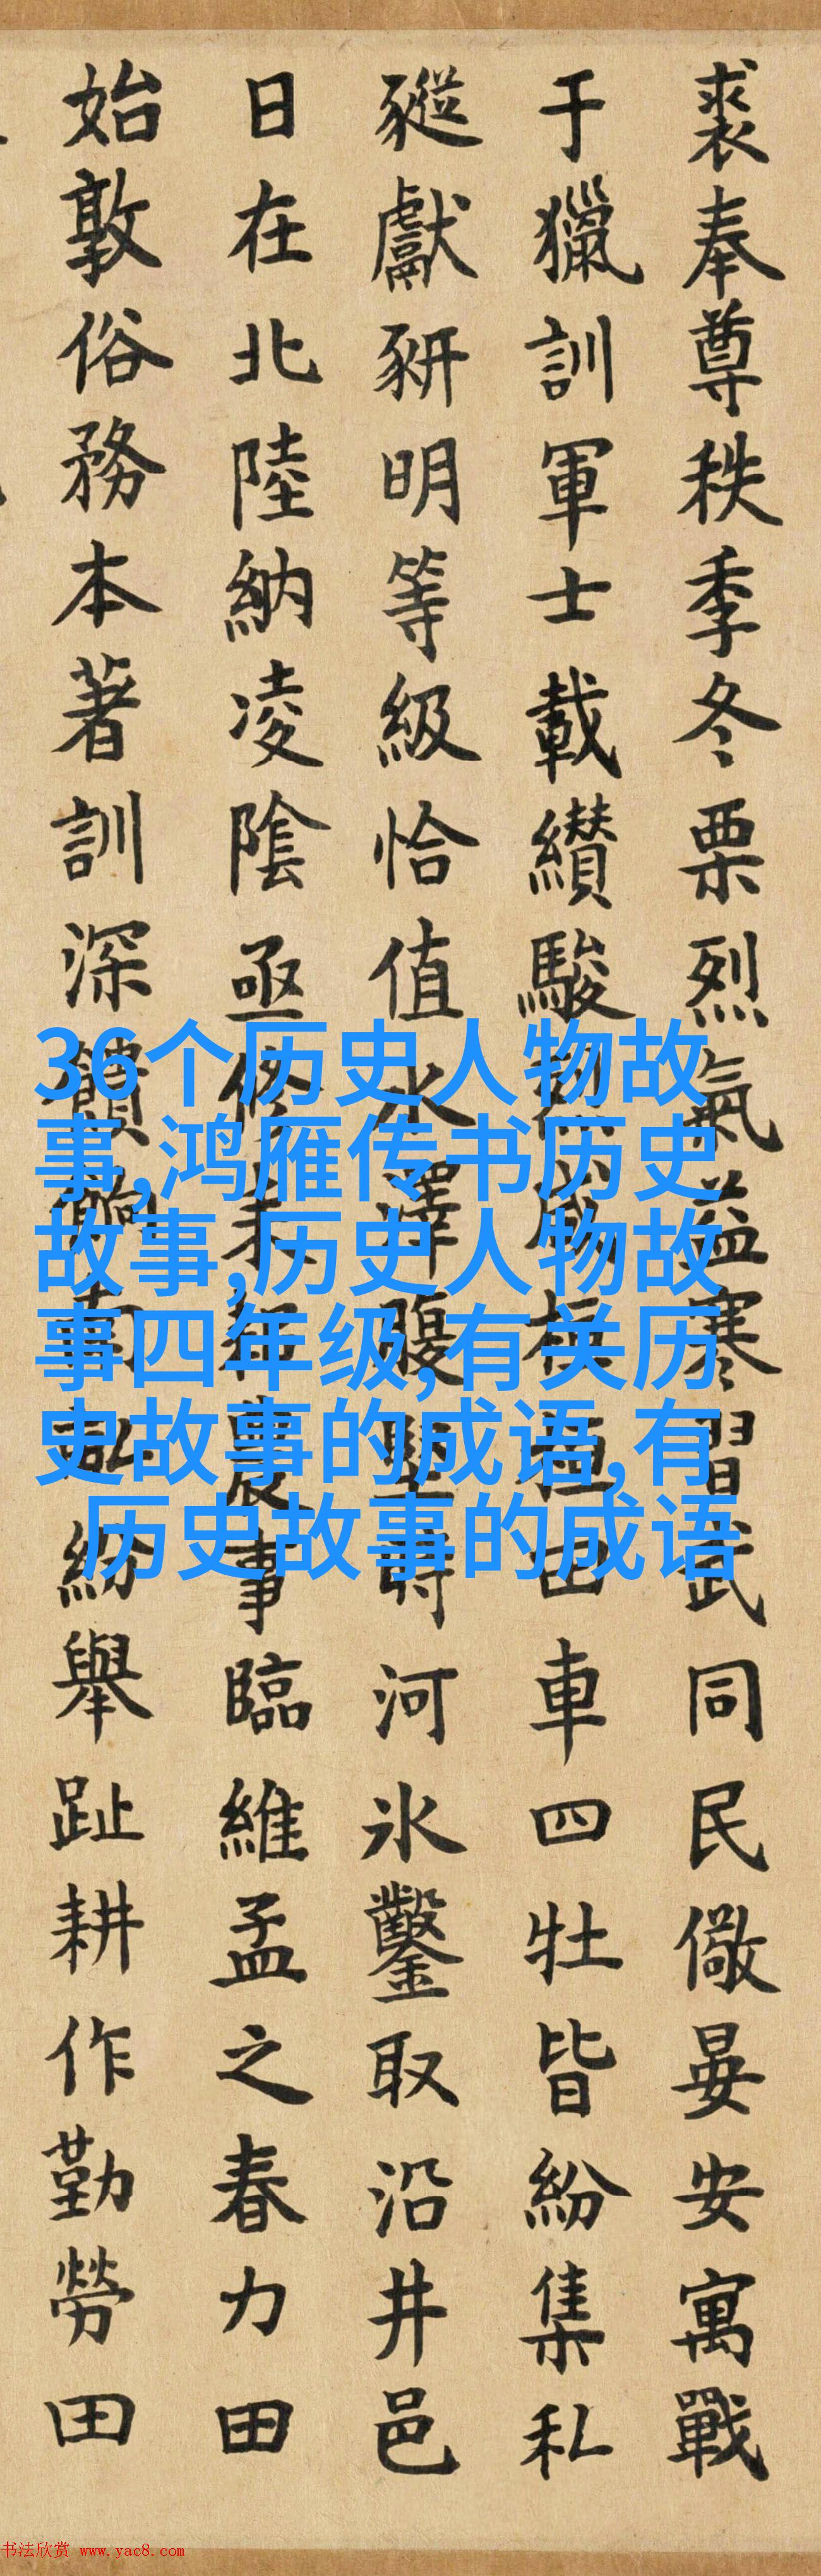 裘奉尊秩季冬栗烈氣益寒習武同民儆晏安寓戰
于獵訓軍士載纘駿威桓桓田車四牡皆紛集私
豵獻豜明等級恰值水澤腹堅時河氷鑿取沿井邑
日在北陸納凌陰亟修耒耜農事臨維孟之春力田
始敦俗務本著訓深饋餉南畝紛舉趾耕作勤勞田
36个历史人物故
事,鸿雁传书历史
故事,历史人物故
事四年级,有关历
史故事的成语,有
历史故事的成语
书法欣赏 www.yac8.com